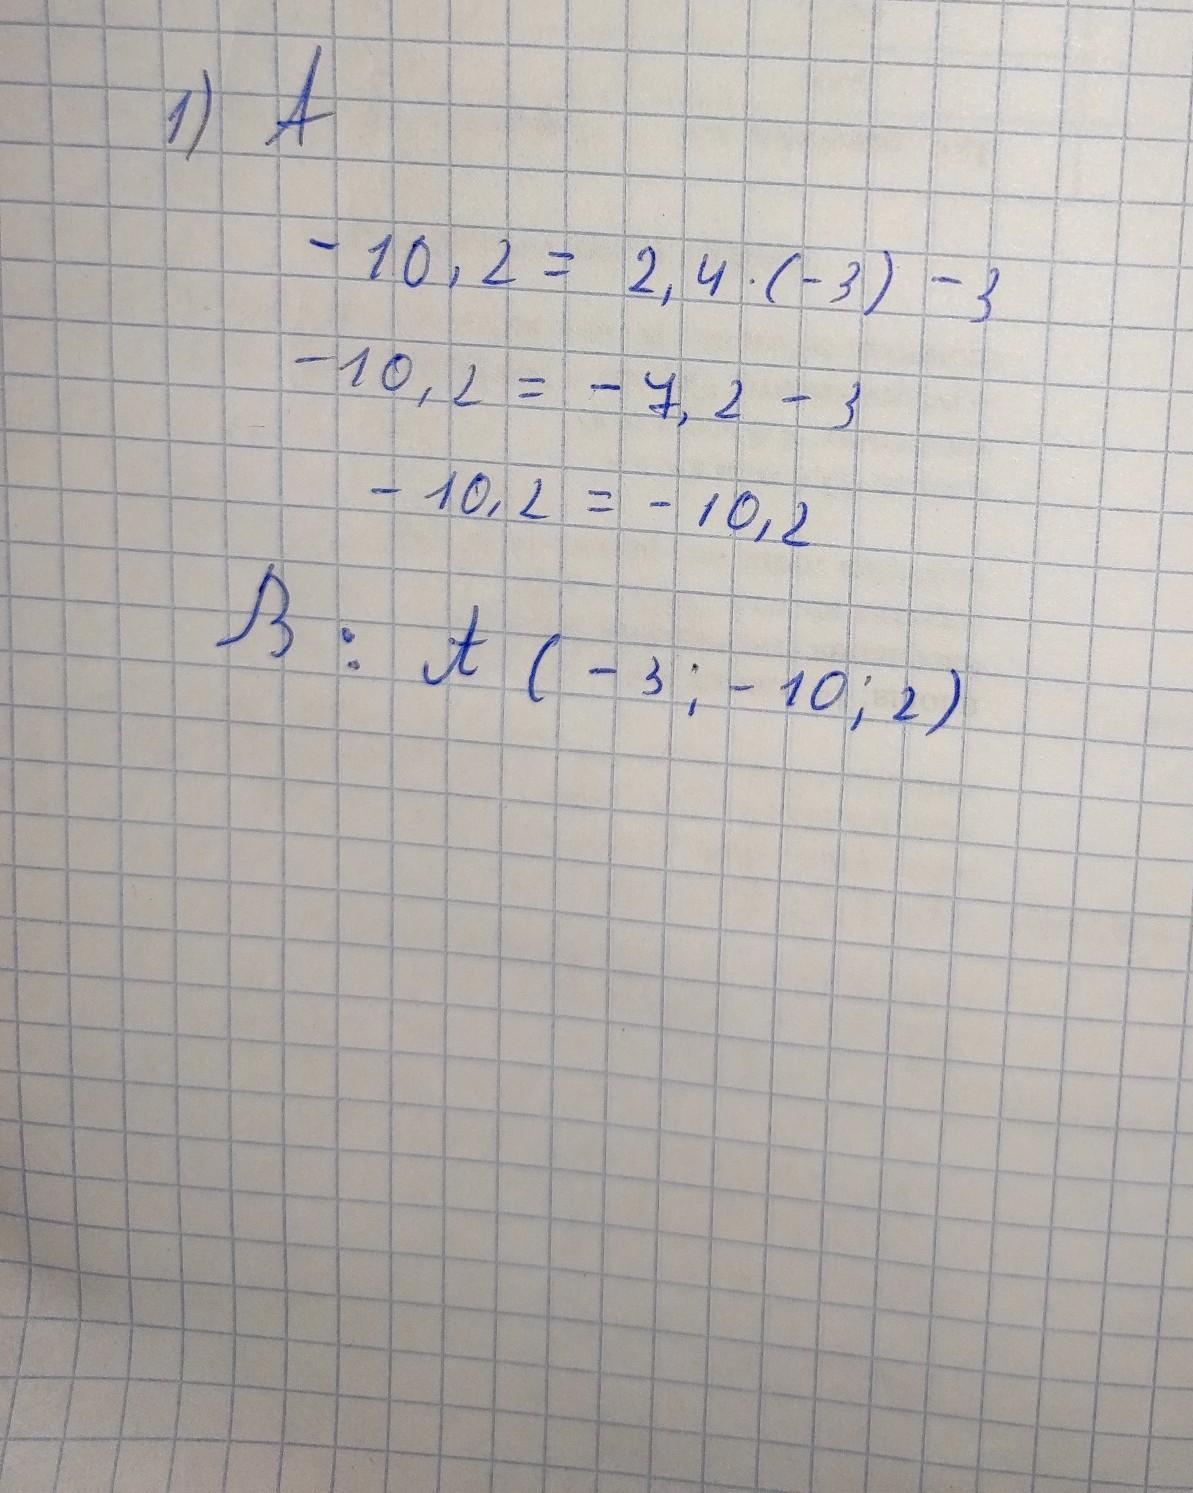 1) А
-10,2 = 2,4·(-3) -3
-10,2 = -7,2 - 3
-10,2 = -10,2
В: А (-3; -10; 2)